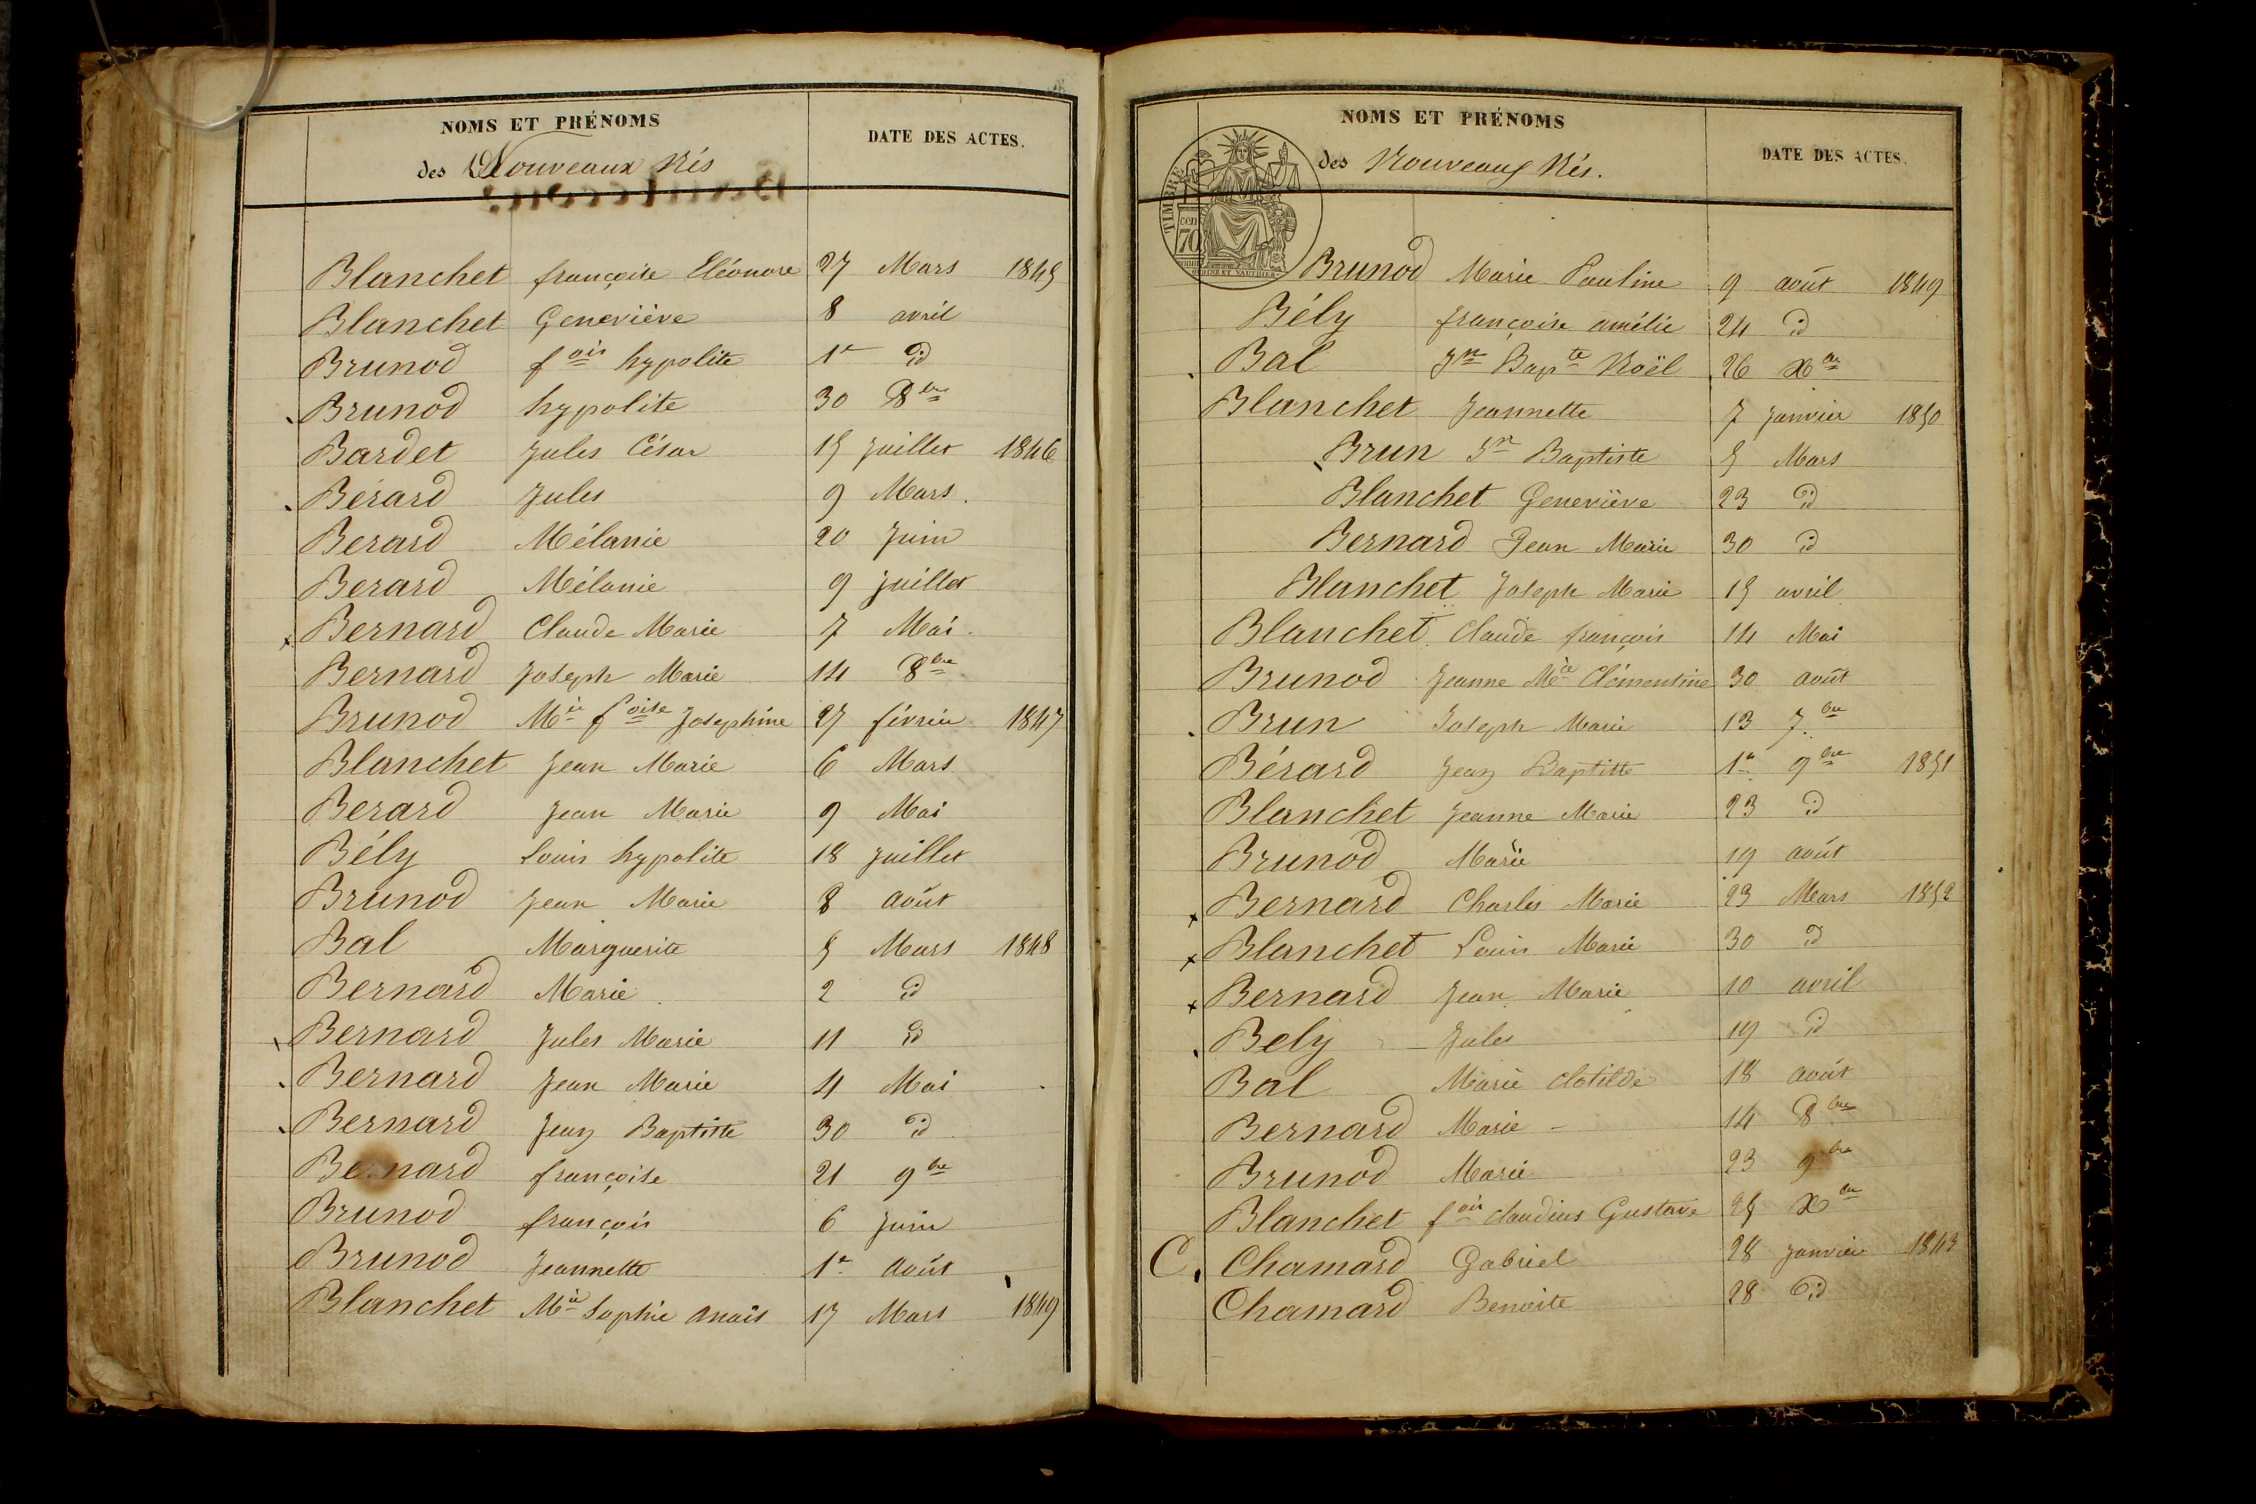 NOMS ET PRÉNOMS
DATE DES ACTES.
des Nouveaux Nés
Blanchet françoise Eléonore 27 Mars 1845
Blanchet Geneviève 8 avril
Brunod fois hypolite 1er id
Brunod hypolite 30 8bre
Bardet Jules César 15 Juillet 1846
Bérard Jules 9 Mars.
Berard Mélanie 20 Juin
Berard Mélanie 9 Juillet
Bernard Claude Marie 7 Mai.
Bernard Joseph Marie 14 8bre
Brunod Mie foise Joséphine 27 février 1847
Blanchet Jean Marie 6 Mars
Berard Jean Marie 9 Mai
Bély Louis hypolite 18 Juillet
Brunod Jean Marie 8 Août
Bal Marguerite 5 Mars 1848
Bernard Marie 2 id
Bernard Jules Marie 11 id
Bernard Jean Marie 4 Mai
Bernard Jean Baptiste 30 id
Bernard françoise 21 9bre
Brunod françois 6 Juin
Brunod Jeannette 1er Août
Blanchet Mie Sophie Anaïs 17 Mars 1849
NOMS ET PRÉNOMS
DATE DES ACTES.
des Nouveaux Nés.
TIMBRE
cen
70
Brunod Marie Pauline 9 août 1849
Bély françoise amélie 24 id
Bal Jn Bapte Noël 26 Xbre
Blanchet Jeannette 7 Janvier 1850
Brun Jn Baptiste 5 Mars
Blanchet Geneviève 23 id
Bernard Jean Marie 30 id
Blanchet Joseph Marie 15 avril
Blanchet Claude françois 14 Mai
Brunod Jeanne Mie Clémentine 30 août
Brun Joseph Marie 13 7bre
Bérard Jean Baptiste 1er 9bre 1851
Blanchet Jeanne Marie 23 id
Brunod Marie 19 août
Bernard Charles Marie 23 Mars 1852
Blanchet Louis Marie 30 id
Bernard Jean Marie 10 avril
Bely Jules 19 id
Bal Marie Clotilde 18 août
Bernard Marie 14 8bre
Brunod Marie 23 9bre
Blanchet fois Claudius Gustave 25 Xbre
C. Chamard Gabriel 28 Janvier 1843
Chamard Benoite 28 id